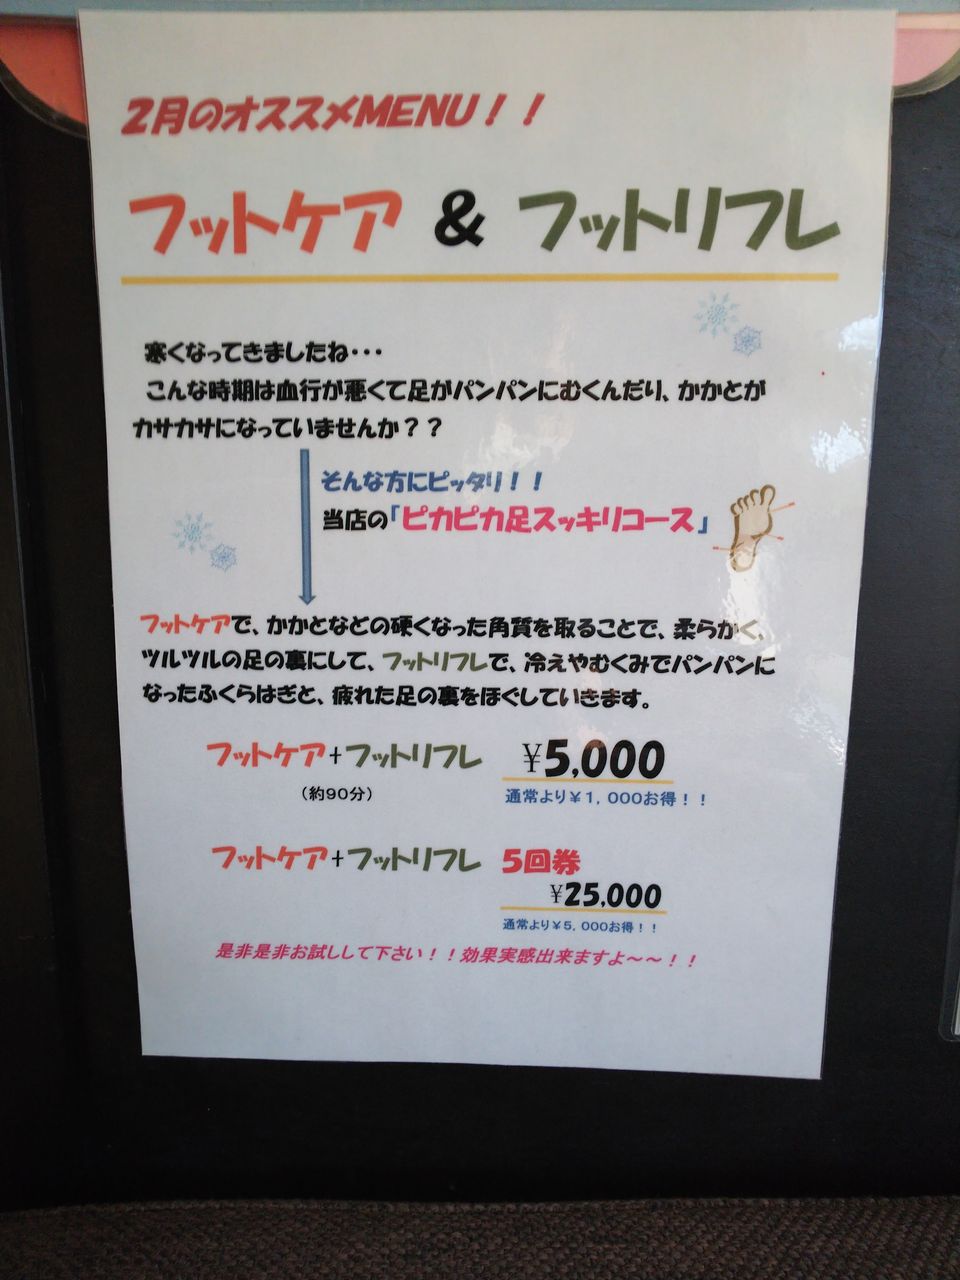 2月のオススメMENU！！
フットケア & フットリフレ
寒くなってきましたね･･･
こんな時期は血行が悪くて足がパンパンにむくんだり、かかとが
カサカサになっていませんか？？
そんな方にピッタリ！！
当店の「ピカピカ足スッキリコース」
フットケアで、かかとなどの硬くなった角質を取ることで、柔らかく、
ツルツルの足の裏にして、フットリフレで、冷えやむくみでパンパンに
なったふくらはぎと、疲れた足の裏をほぐしていきます。
フットケア+フットリフレ ¥5,000
（約90分） 通常より￥1，000お得！！
フットケア+フットリフレ 5回券
¥25,000
通常より￥5，000お得！！
是非是非お試しして下さい！！効果実感出来ますよ～～！！